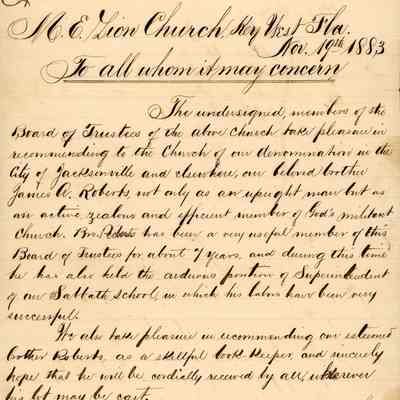 M. E. Zion Church, Key West Fla.
Nov. 19th 1883
To all whom it may concern
The undersigned, members of the
Board of Trustees of the above church take pleasure in
recommending to the Church of our denomination in the
City of Jacksonville and elsewhere, our beloved brother
James A. Roberts, not only as an upright man but as
an active, zealous and efficient member of God's militant
Church. Bro. Roberts has been a very useful member of this
Board of Trustees for about 7 years, and during this time
he has also held the arduous position of Superintendent
of our Sabbath School, in which his labors have been very
successful.
We also take pleasure in recommending our esteemed
brother Roberts, as a skillful book keeper, and sincerely
hope that he will be cordially received by all, wherever
his lot may be cast.